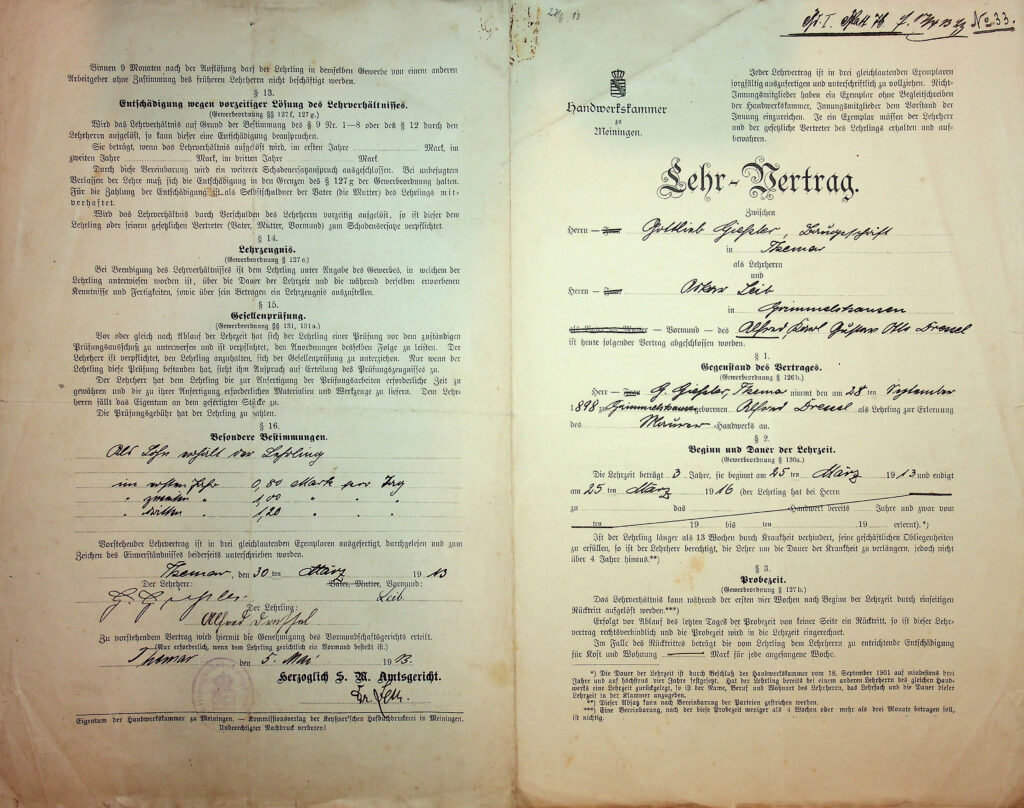 Binnen 9 Monaten nach der Auflösung darf der Lehrling in demselben Gewerbe von einem anderen
Arbeitgeber ohne Zustimmung des früheren Lehrherrn nicht beschäftigt werden.
§ 13.
Entschädigung wegen vorzeitiger Lösung des Lehrverhältnisses.
(Gewerbeordnung §§ 127f, 127g.)
Wird das Lehrverhältnis auf Grund der Bestimmung des § 9 Nr. 1–8 oder des § 12 durch den
Lehrherrn aufgelöst, so kann dieser eine Entschädigung beanspruchen.
Sie beträgt, wenn das Lehrverhältnis aufgelöst wird, im ersten Jahre Mark, im
zweiten Jahre Mark, im dritten Jahre Mark.
Durch diese Vereinbarung wird ein weiterer Schadenersatzanspruch ausgeschlossen. Bei unbefugtem
Verlassen der Lehre muß sich die Entschädigung in den Grenzen des § 127g der Gewerbeordnung halten.
Für die Zahlung der Entschädigung ist als Selbstschuldner der Vater (die Mutter) des Lehrlings mit-
verhaftet.
Wird das Lehrverhältnis durch Verschulden des Lehrherrn vorzeitig aufgelöst, so ist dieser dem
Lehrling oder seinem gesetzlichen Vertreter (Vater, Mutter, Vormund) zum Schadensersatze verpflichtet.
§ 14.
Lehrzeugnis.
(Gewerbeordnung § 127c.)
Bei Beendigung des Lehrverhältnisses ist dem Lehrling unter Angabe des Gewerbes, in welchem der
Lehrling unterwiesen worden ist, über die Dauer der Lehrzeit und die während derselben erworbenen
Kenntnisse und Fertigkeiten, sowie über sein Betragen ein Lehrzeugnis auszustellen.
§ 15.
Gesellenprüfung.
(Gewerbeordnung §§ 131, 131a.)
Vor oder gleich nach Ablauf der Lehrzeit hat sich der Lehrling einer Prüfung vor dem zuständigen
Prüfungsausschuß zu unterwerfen und ist verpflichtet, den Anordnungen desselben Folge zu leisten. Der
Lehrherr ist verpflichtet, den Lehrling anzuhalten, sich der Gesellenprüfung zu unterziehen. Nur wenn der
Lehrling diese Prüfung bestanden hat, steht ihm auch Anspruch auf Erteilung des Prüfungszeugnisses zu.
Der Lehrherr hat dem Lehrling die zur Anfertigung der Prüfungsarbeiten erforderliche Zeit zu
gewähren und die zu ihrer Anfertigung erforderlichen Materialien und Werkzeuge zu liefern. Dem Lehr-
herrn fällt das Eigentum an den gefertigten Stücken zu.
Die Prüfungsgebühr hat der Lehrling zu zahlen.
§ 16.
Besondere Bestimmungen.
Als Lohn erhält der Lehrling
im ersten Jahr 0,80 Mark pro Tag
" zweiten " 1,00 " " "
" dritten " 1,20 " " "
Vorstehender Lehrvertrag ist in drei gleichlautenden Exemplaren ausgefertigt, durchgelesen und zum
Zeichen des Einverständnisses beiderseits unterschrieben worden.
Themar, den 30 ten März 1913
Der Lehrherr: Vater, Mutter, Vormund:
Leib
Der Lehrling:
Alfred Dressel
Zu vorstehendem Vertrag wird hiermit die Genehmigung des Vormundschaftsgerichts erteilt.
(Nur erforderlich, wenn dem Lehrling gerichtlich ein Vormund bestellt ist.)
Themar den 5. Mai 1913.
Herzoglich S. M. Amtsgericht.
Eigentum der Handwerkskammer zu Meiningen. – Kommissionsverlag der Keyßner'schen Hofbuchdruckerei in Meiningen.
Unberechtigter Nachdruck verboten!
No 33.
Handwerkskammer
zu
Meiningen.
Jeder Lehrvertrag ist in drei gleichlautenden Exemplaren
sorgfältig auszufertigen und unterschriftlich zu vollziehen. Nicht-
Innungsmitglieder haben ein Exemplar ohne Begleitschreiben
der Handwerkskammer, Innungsmitglieder dem Vorstand der
Innung einzureichen. Je ein Exemplar müssen der Lehrherr
und der gesetzliche Vertreter des Lehrlings erhalten und auf-
bewahren.
Lehr-Vertrag.
Zwischen
Herrn – Frau Gottlieb Gießler,
in Themar
als Lehrherrn
und
Herrn – Frau Oskar Leib
in Grimmelshausen
– Vormund – des Alfred Karl Gustav Otto Dressel
ist heute folgender Vertrag abgeschlossen worden.
§ 1.
Gegenstand des Vertrages.
(Gewerbeordnung § 126b.)
Herr – Frau G. Gießler, Themar nimmt den am 28 ten September
1898 zu Grimmelshausen geborenen Alfred Dressel als Lehrling zur Erlernung
des Maurer-Handwerks an.
§ 2.
Beginn und Dauer der Lehrzeit.
(Gewerbeordnung § 130a.)
Die Lehrzeit beträgt 3 Jahre, sie beginnt am 25 ten März 1913 und endigt
am 25 ten März 1916 (der Lehrling hat bei Herrn
zu das Handwerk bereits Jahre und zwar vom
ten 19 bis ten 19 erlernt).*)
Ist der Lehrling länger als 13 Wochen durch Krankheit verhindert, seine geschäftlichen Obliegenheiten
zu erfüllen, so ist der Lehrherr berechtigt, die Lehre um die Dauer der Krankheit zu verlängern, jedoch nicht
über 4 Jahre hinaus.**)
§ 3.
Probezeit.
(Gewerbeordnung § 127b.)
Das Lehrverhältnis kann während der ersten vier Wochen nach Beginn der Lehrzeit durch einseitigen
Rücktritt aufgelöst werden.***)
Erfolgt vor Ablauf des letzten Tages der Probezeit von keiner Seite ein Rücktritt, so ist dieser Lehr-
vertrag rechtsverbindlich und die Probezeit wird in die Lehrzeit eingerechnet.
Im Falle des Rücktrittes beträgt die vom Lehrling dem Lehrherrn zu entrichtende Entschädigung
für Kost und Wohnung Mark für jede angefangene Woche.
*) Die Dauer der Lehrzeit ist durch Beschluß der Handwerkskammer vom 18. September 1901 auf mindestens drei
Jahre und auf höchstens vier Jahre festgesetzt. Hat der Lehrling bereits bei einem anderen Lehrherrn des gleichen Hand-
werks eine Lehrzeit zurückgelegt, so ist der Name, Beruf und Wohnort des Lehrherrn, das Lehrfach und die Dauer dieser
Lehrzeit in der Klammer anzugeben.
**) Dieser Absatz kann nach Vereinbarung der Parteien gestrichen werden.
***) Eine Vereinbarung, nach der diese Probezeit weniger als 4 Wochen oder mehr als drei Monate betragen soll,
ist nichtig.